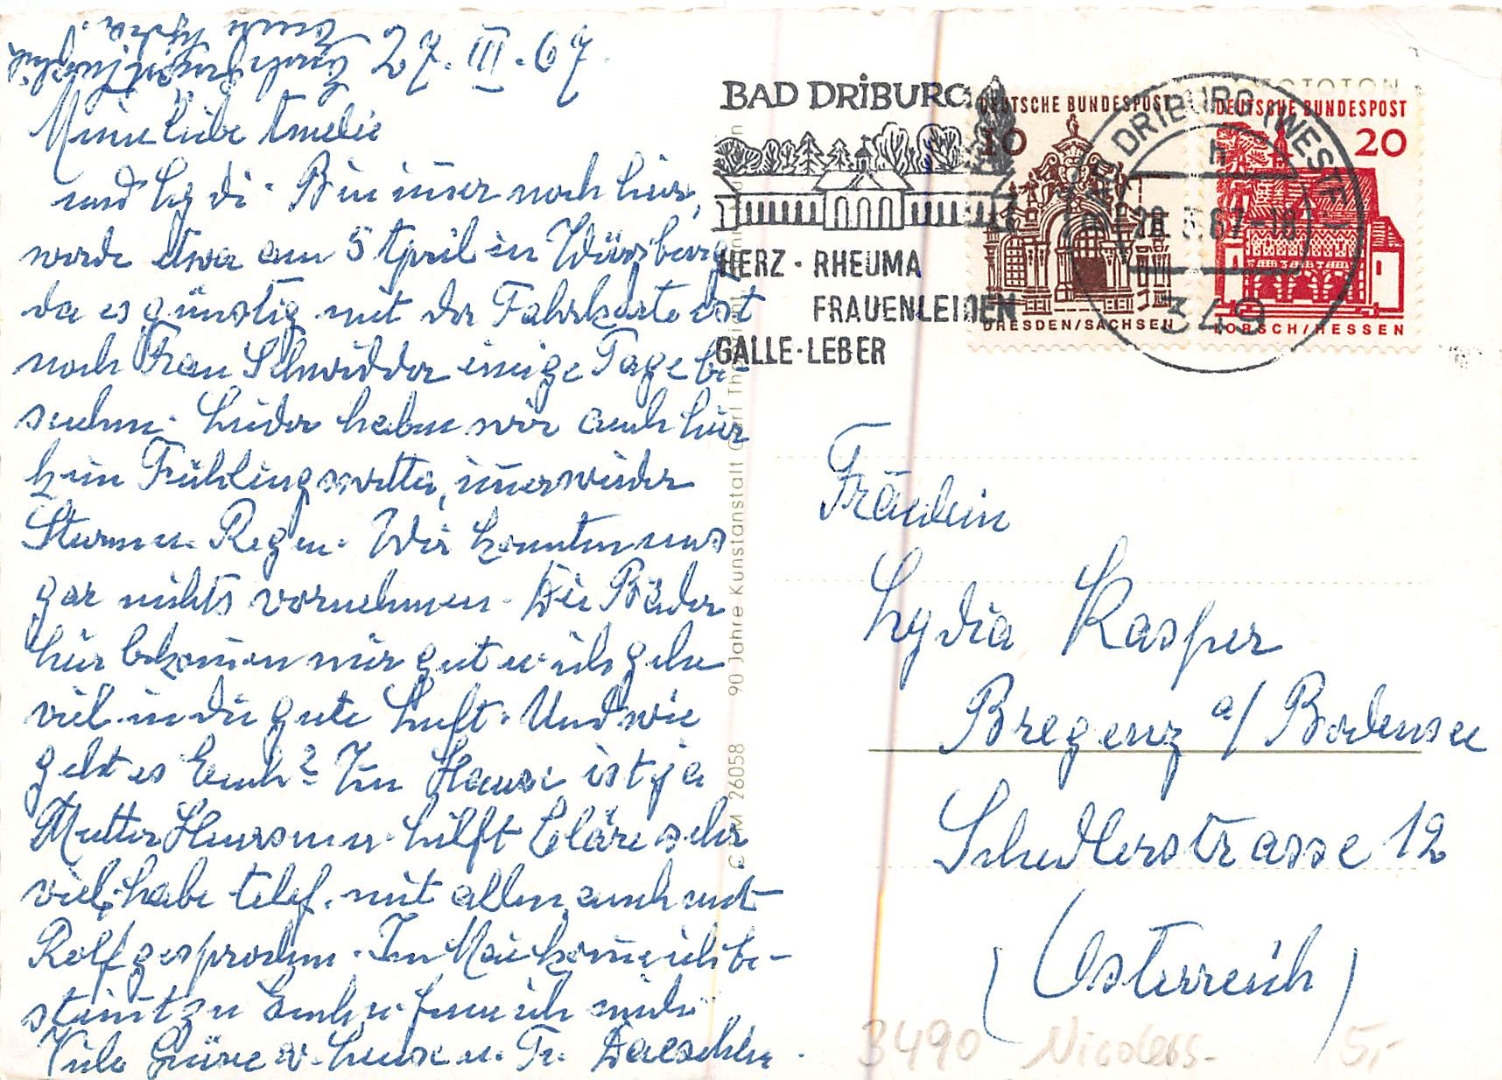 27. III. 67.
Meine liebe Amelie
und Lydi. Bin im̅er noch hier,
werde etwa am 5 April in Würzburg
da es günstig mit der Fahrkarte ist
noch Frau Schwidder einige Tage be-
suchen. Leider haben wir auch hier
kein Frühlingswetter, im̅er wieder
Sturm u. Regen. Wir konnten uns
gar nichts vornehmen. Die Bäder
hier bekom̅en mir gut u. ich gehe
viel in die gute Luft. Und wie
geht es Euch? Im Hause ist ja
Mutter u. hilft Cläre sehr
viel, habe telef. mit allen, auch mit
Rolf gesprochen. Im Mai kom̅e ich be-
stim̅t zu Euch u. freue ich mich
Viele Grüsse v. Luise u. Fr. Daeschler.
BAD DRIBURG
HERZ · RHEUMA
FRAUENLEIDEN
GALLE · LEBER
DEUTSCHE BUNDESPOST
10
DRESDEN/SACHSEN
DEUTSCHE BUNDESPOST
20
LORSCH/HESSEN
BAD DRIBURG (WESTF)
h
28.3.67-18
349
FOTOTON
26058 90 Jahre Kunstanstalt Carl
Fräulein
Lydia Kasper
Bregenz a/ Bodensee
Schedlerstrasse 12
(Österreich)
3490 5,-